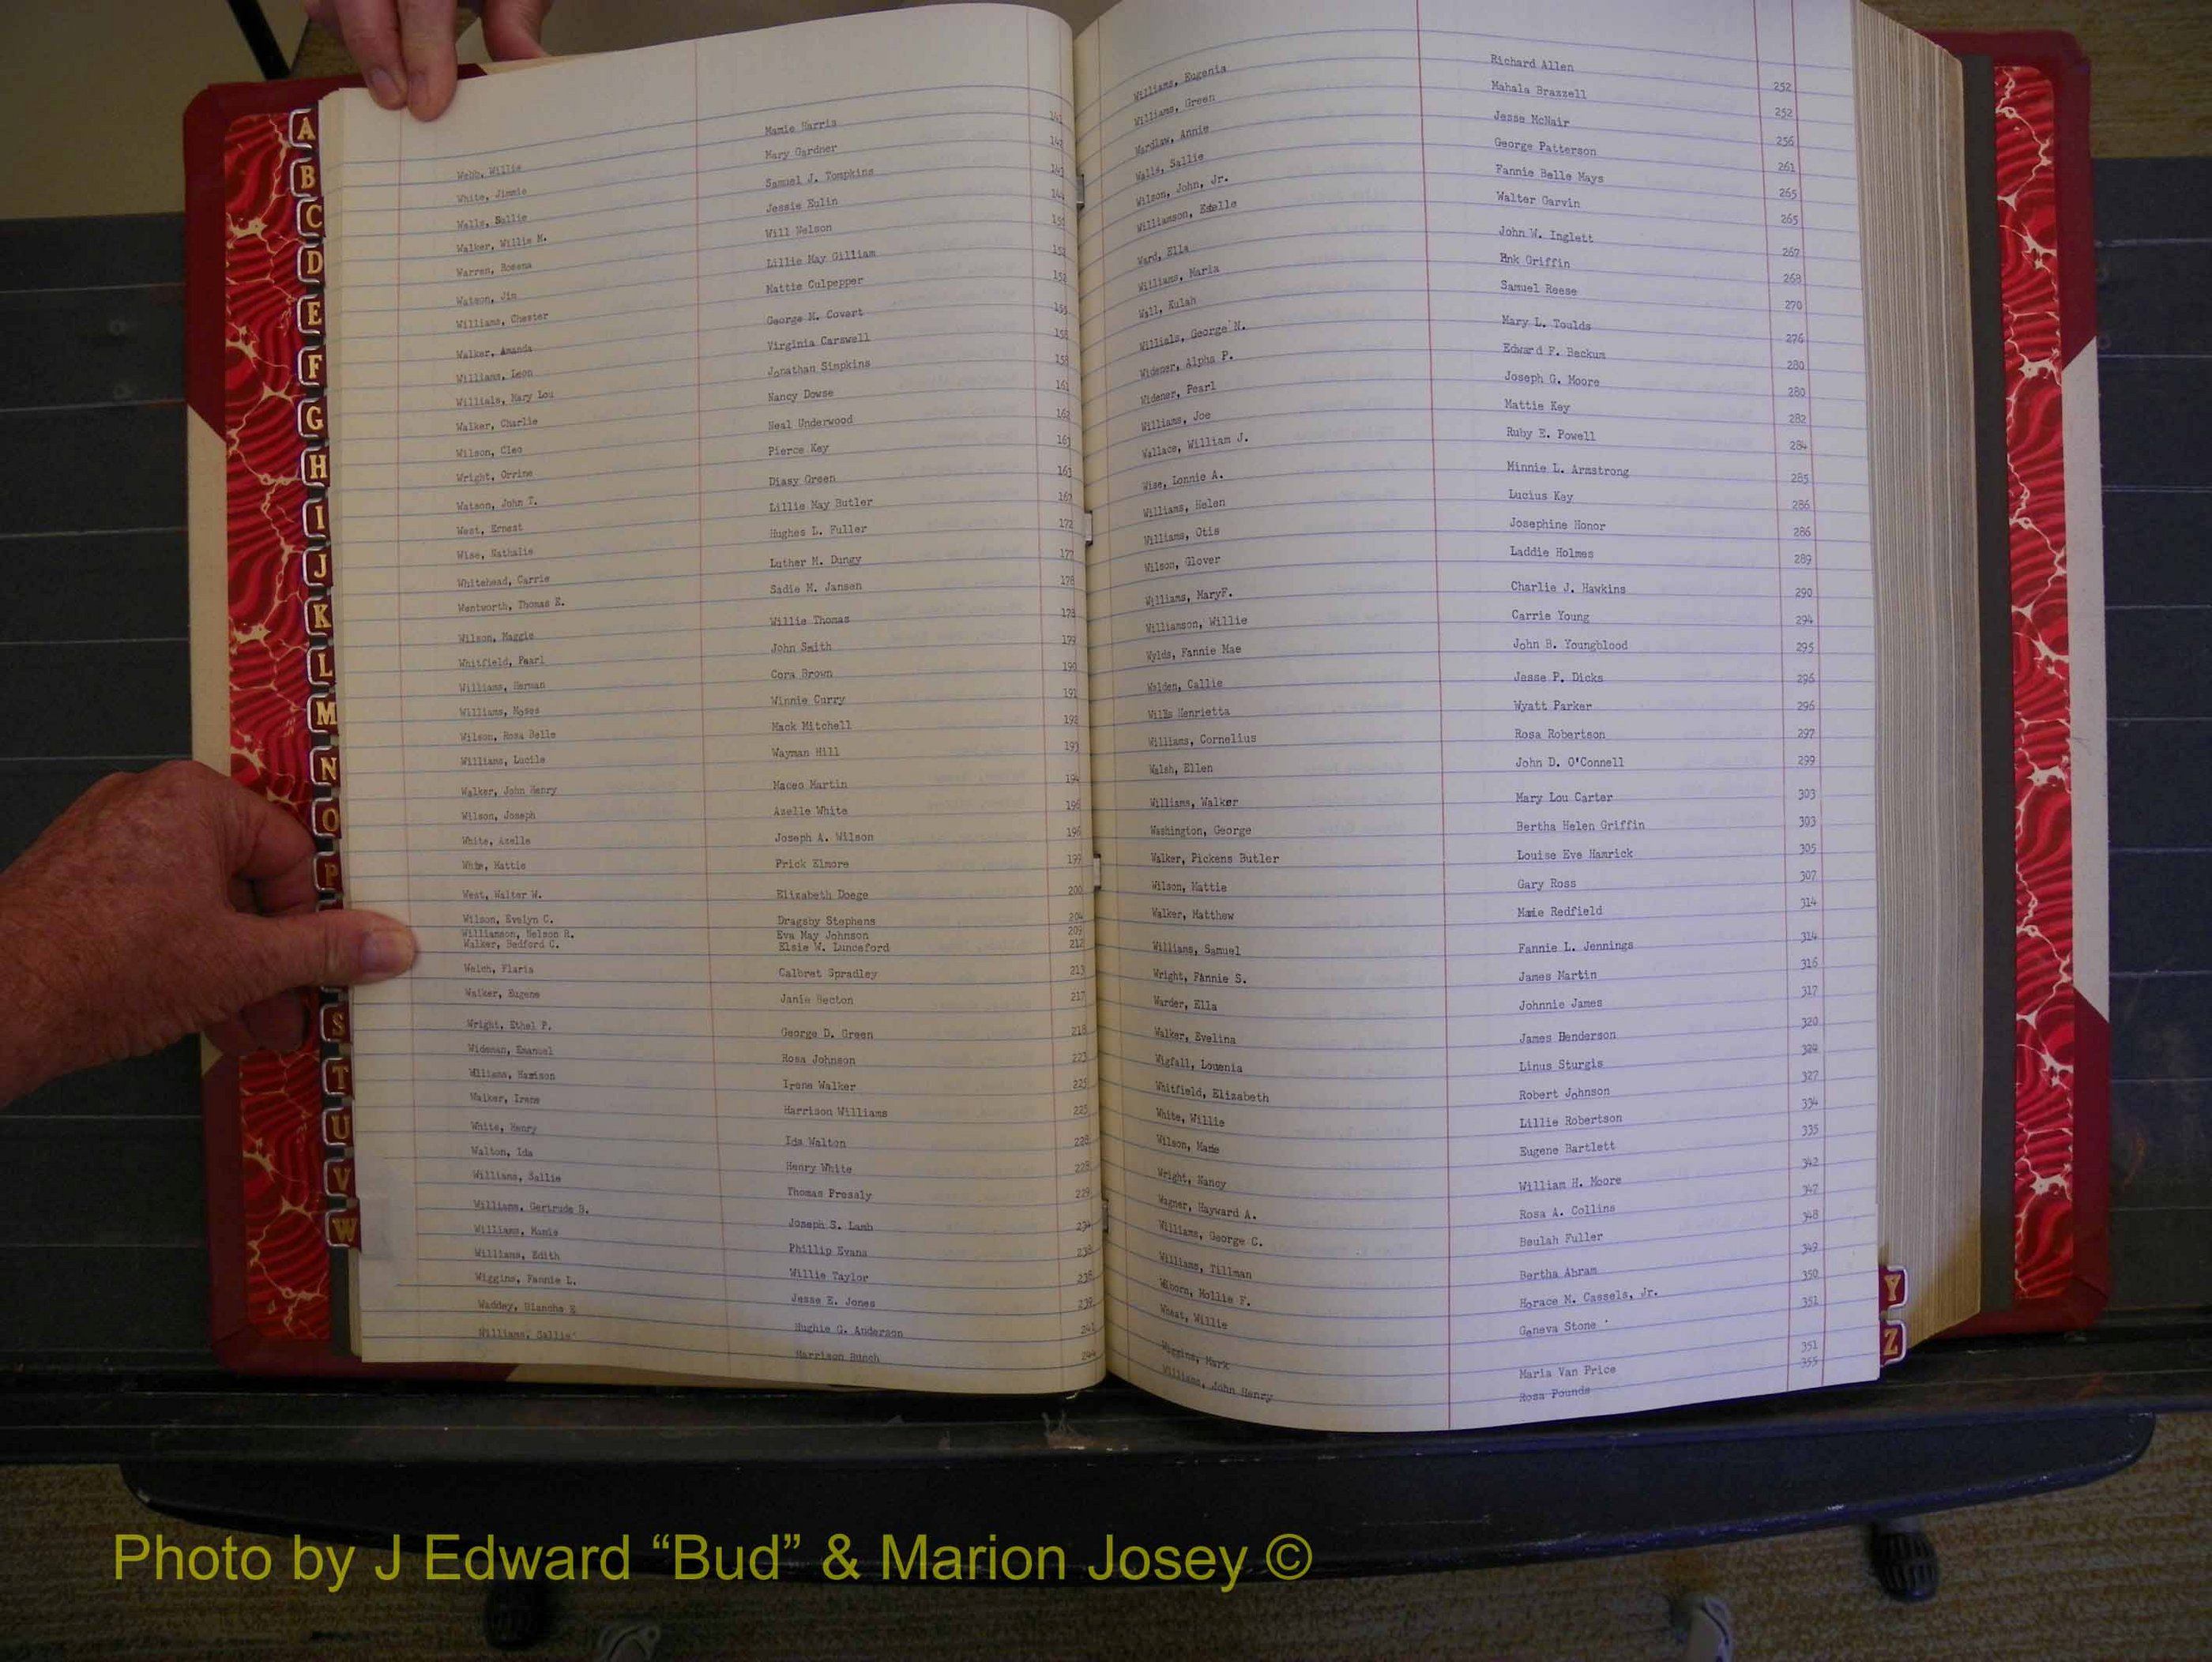 A
B
C
D
E
F
G
H
I
J
K
L
M
N
O
P
S
T
U
V
W
Webb, Willie Mamie Harris 141
White, Jimmie Mary Gardner 142
Walls, Sallie Samuel J. Tompkins 143
Walker, Willie M. Jessie Eulin 144
Warren, Rosena Will Nelson
Watson, Jim Lillie May Gilliam 152
Williams, Chester Mattie Culpepper 152
Walker, Amanda George M. Covert 155
Williams, Leon Virginia Carswell 158
Willials, Mary Lou Jonathan Simpkins 158
Walker, Charlie Nancy Dowse 161
Wilson, Cleo Neal Underwood 162
Wright, Orrine Pierce Key 163
Watson, John T. Diasy Green 163
West, Ernest Lillie May Butler 167
Wise, Nathalie Hughes L. Fuller 172
Whitehead, Carrie Luther M. Dungy 177
Wentworth, Thomas E. Sadie M. Jansen 178
Wilson, Maggie Willie Thomas 178
Whitfield, Pearl John Smith
Williams, Herman Cora Brown 190
Williams, Moses Winnie Curry 191
Wilson, Rosa Belle Mack Mitchell 192
Williams, Lucile Wayman Hill 193
Walker, John Henry Maceo Martin 194
Wilson, Joseph Azelle White 196
White, Azelle Joseph A. Wilson 196
White, Mattie Prick Elmore 199
West, Walter W. Elizabeth Doege 200
Wilson, Evelyn C. Dragsby Stephens 204
Williamson, Nelson R. Eva May Johnson 209
Walker, Bedford C. Elsie W. Lunceford 212
Welch, Flaris Calbret Spradley 213
Walker, Eugene Janie Becton 217
Wright, Ethel P. George D. Green 218
Wideman, Emanuel Rosa Johnson 223
Williams, Harrison Irene Walker 225
Walker, Irene Harrison Williams 225
White, Henry Ida Walton 228
Walton, Ida Henry White 228
Williams, Sallie Thomas Pressly 229
Williams, Gertrude B. Joseph S. Lamb 234
Williams, Mamie Phillip Evans 238
Williams, Edith Willie Taylor 238
Wiggins, Fannie L. Jesse E. Jones 239
Waddey, Blanche E Hughie G. Anderson 241
Williams, Callie Harrison Bunch 244
Williams, Eugenia Richard Allen 252
Williams, Green Mahala Brazzell 252
Wardlaw, Annie Jesse McNair 256
Walls, Sallie George Patterson 261
Wilson, John, Jr. Fannie Belle Mays 265
Williamson, Estelle Walter Garvin 265
Ward, Ella John W. Inglett 267
Williams, Maria Hnk Griffin 268
Wall, Eulah Samuel Reese 270
Willials, George N. Mary L. Toulds 276
Widener, Alpha P. Edward F. Beckum 280
Widener, Pearl Joseph G. Moore 280
Williams, Joe Mattie Key 282
Wallace, William J. Ruby E. Powell 284
Wise, Lonnie A. Minnie L. Armstrong 285
Williams, Helen Lucius Key 286
Williams, Otis Josephine Honor 286
Wilson, Glover Laddie Holmes 289
Williams, MaryF. Charlie J. Hawkins 290
Williamson, Willie Carrie Young 294
Wylds, Fannie Mae John B. Youngblood 295
Walden, Callie Jesse P. Dicks 296
Wills Henrietta Wyatt Parker 296
Williams, Cornelius Rosa Robertson 297
Walsh, Ellen John D. O'Connell 299
Williams, Walker Mary Lou Carter 303
Washington, George Bertha Helen Griffin 303
Walker, Pickens Butler Louise Eve Hamrick 305
Wilson, Mattie Gary Ross 307
Walker, Matthew Marie Redfield 314
Williams, Samuel Fannie L. Jennings 314
Wright, Fannie S. James Martin 316
Warder, Ella Johnnie James 317
Walker, Evelina James Henderson 320
Wigfall, Louenia Linus Sturgis 324
Whitfield, Elizabeth Robert Johnson 327
White, Willie Lillie Robertson 334
Wilson, Marie Eugene Bartlett 335
Wright, Nancy William H. Moore 342
Wagner, Hayward A. Rosa A. Collins 347
Williams, George C. Beulah Fuller 348
Williams, Tillman Bertha Abram 349
Wiborn, Mollie F. Horace M. Cassels, Jr. 350
Wheat, Willie Geneva Stone 351
Wiggins, Mark Maria Van Price 351
Williams, John Henry Rosa Pounds 355
Y
Z
Photo by J Edward “Bud” & Marion Josey ©